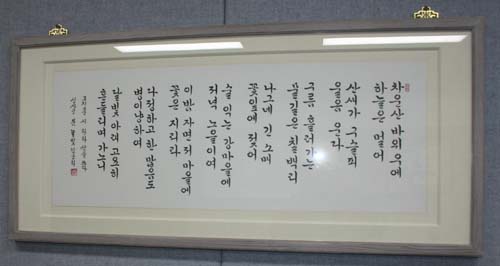 차운산 바위 우에
하늘은 멀어
산새가 구슬피
울음 운다
구름 흘러가는
물길은 칠백리
나그네 긴 소매
꽃잎에 젖어
술 익는 강마을에
저녁 노을이여
이 밤 자면 저 마을에
꽃은 지리라
다정하고 한 많음도
병이냥하여
달빛 아래 고요히
흔들리며 가노니
조지훈 시 완화삼을